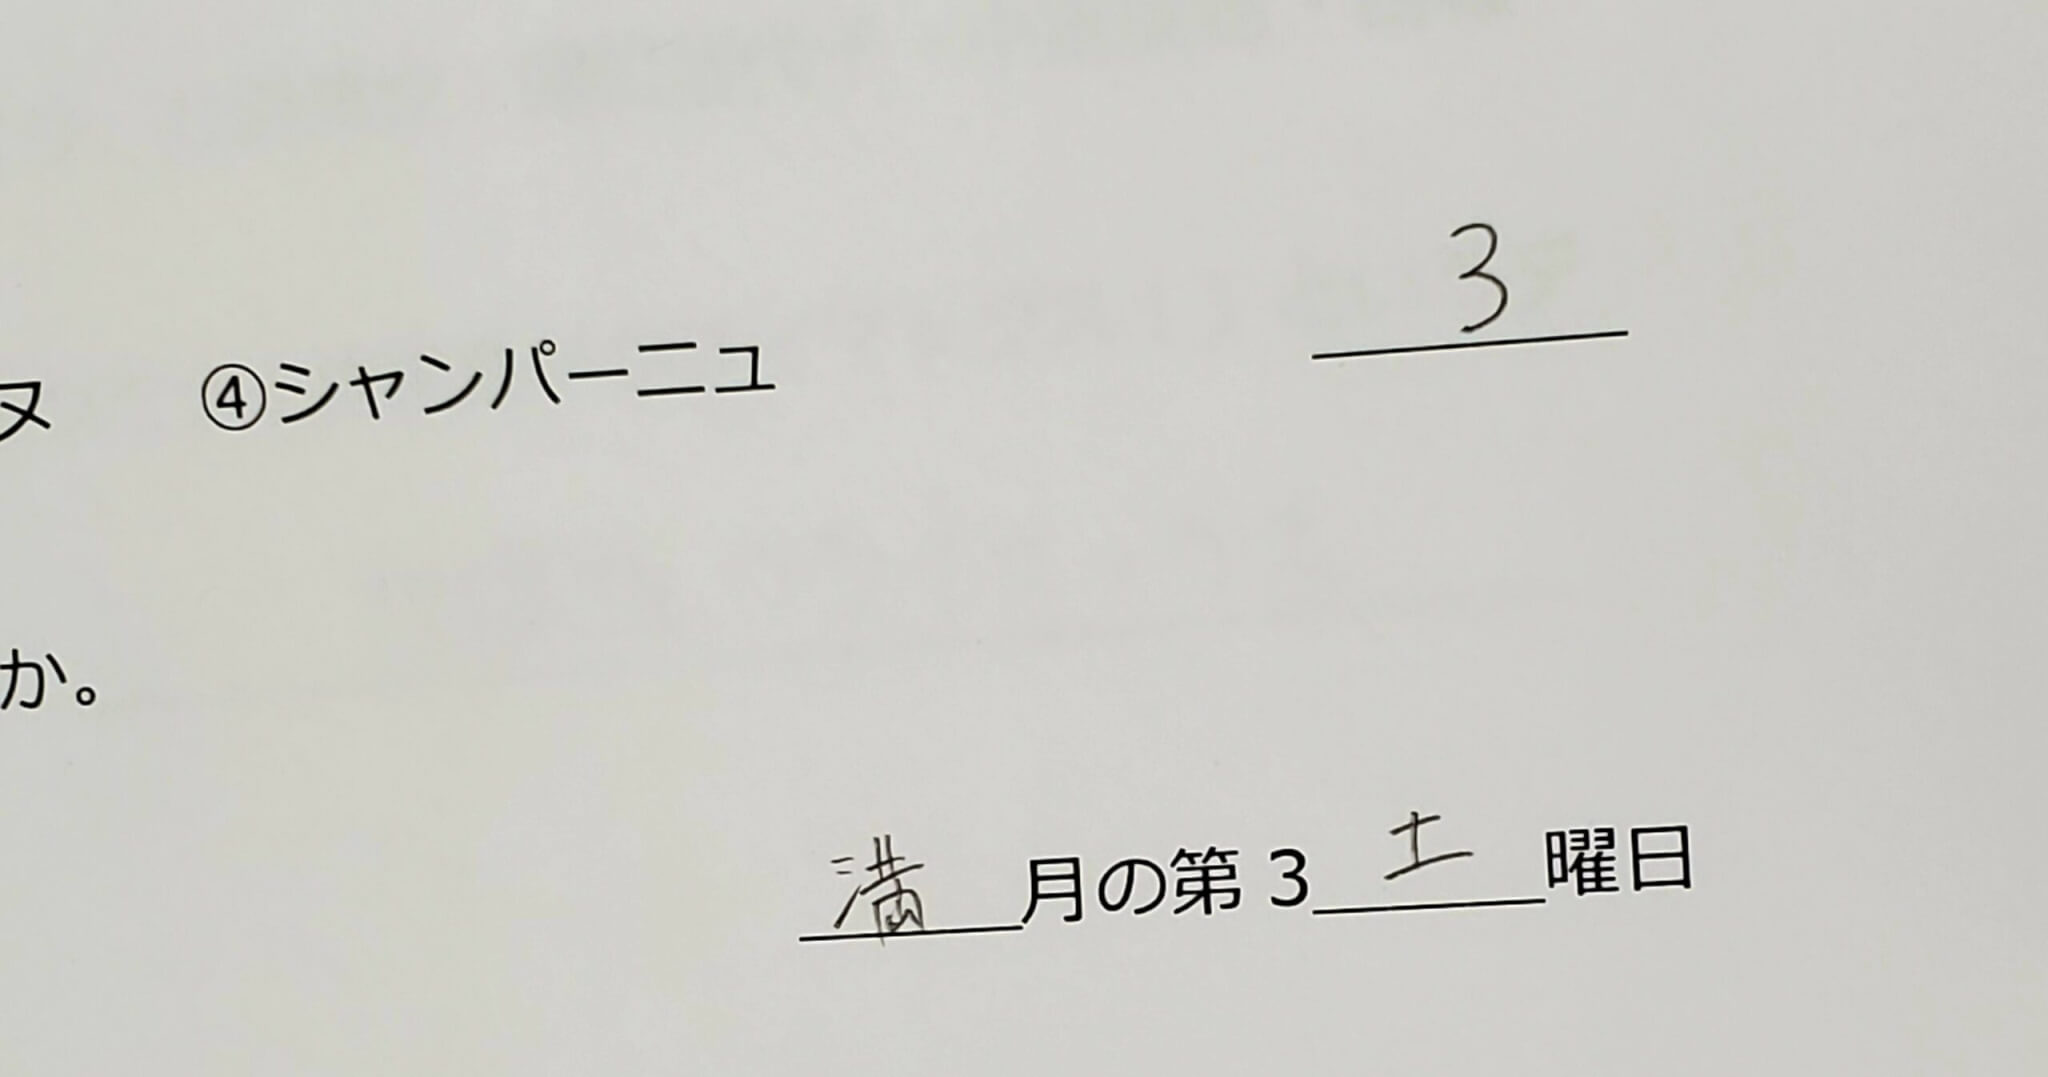 3
ヌ ④シャンパーニュ
か。
満月の第3土曜日